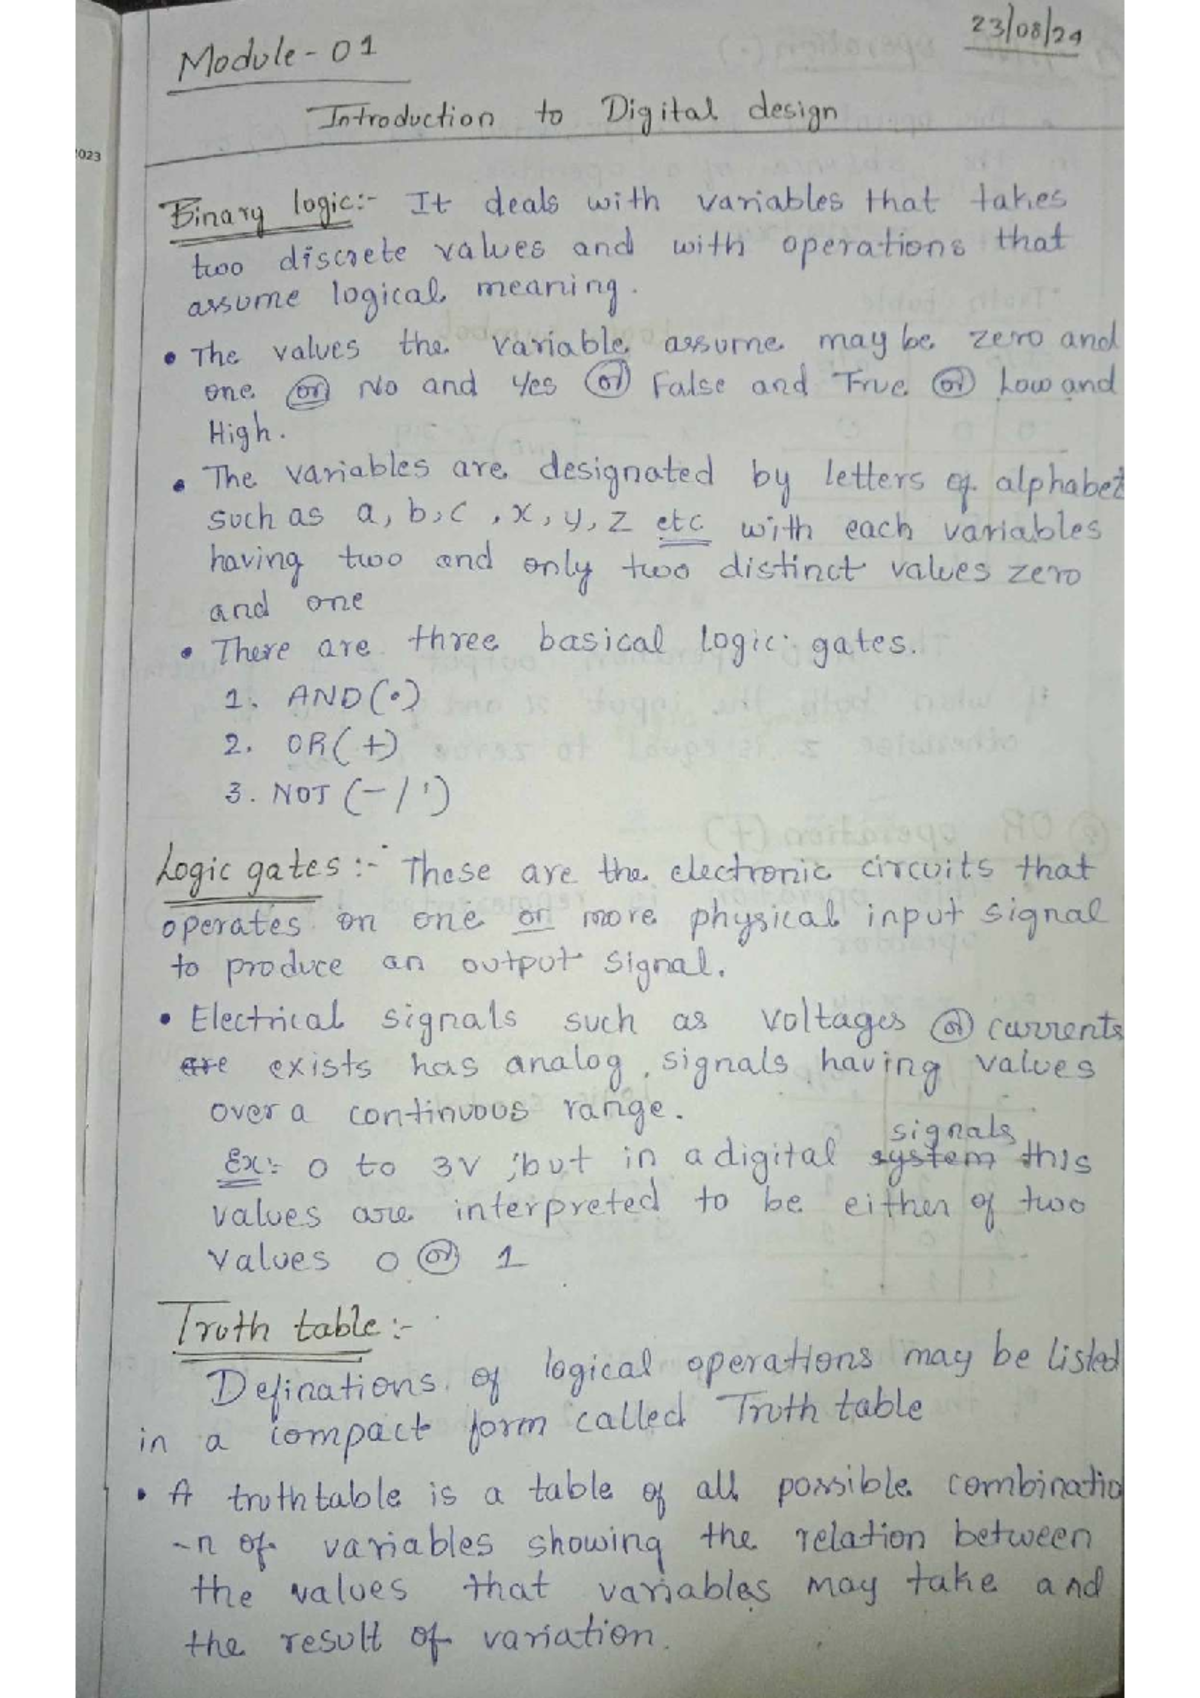 23/08/24
Module-01
Introduction to Digital design
2023
Binary logic:- It deals with variables that takes
two discrete values and with operations that
assume logical meaning.
• The values the variable assume may be zero and
one or No and Yes or False and True or Low and
High.
• The variables are designated by letters of alphabet
such as a, b, c, x, y, z etc with each variables
having two and only two distinct values zero
and one
• There are three basical logic gates.
1. AND(•)
2. OR(+)
3. NOT (-/')
Logic gates:- These are the electronic circuits that
operates on one or more physical input signal
to produce an output signal.
• Electrical signals such as voltages or currents
are exists has analog signals having values
over a continuous range.
signals
Ex:- 0 to 3V ;but in a digital system this
values are interpreted to be either of two
values 0 or 1
Truth table:-
Definations of logical operations may be listed
in a compact form called Truth table
• A truth table is a table of all possible combinatio
-n of variables showing the relation between
the values that variables may take and
the result of variation.